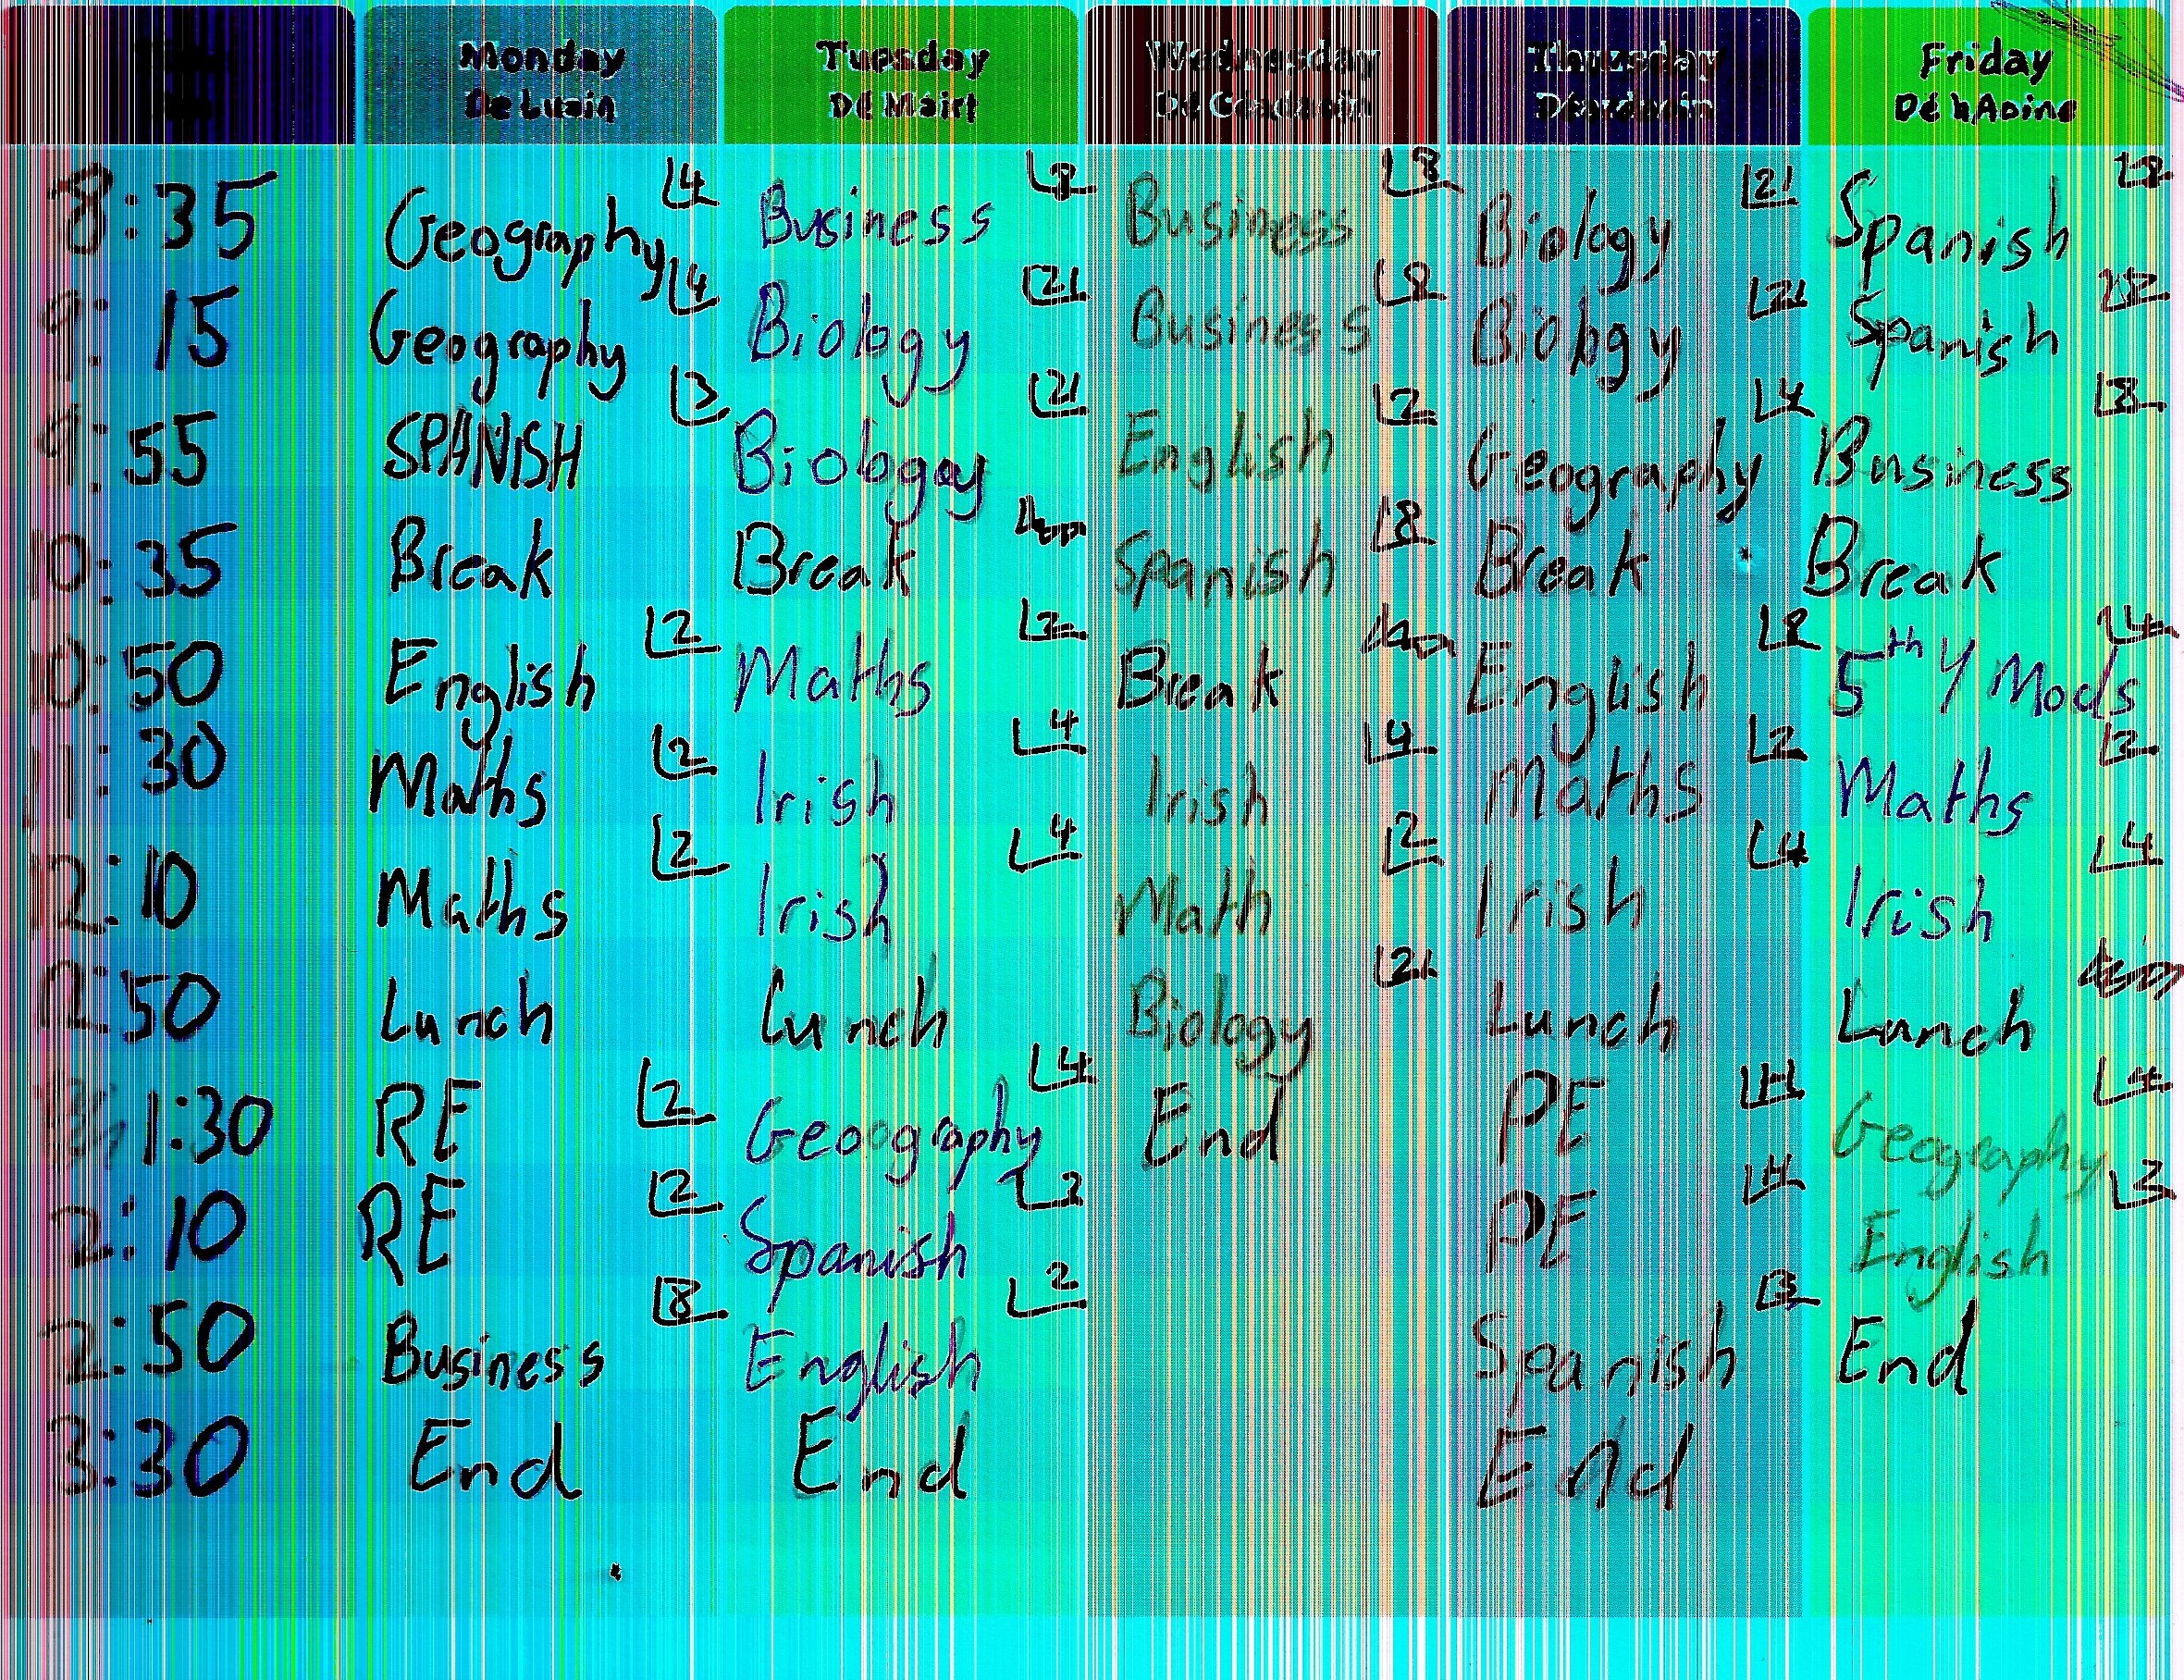 Monday Tuesday Wednesday Thursday Friday
De Luain Dé Máirt Dé Céadaoin Déardaoin Dé hAoine
8:35 Geography 4 Business 8 Business 8 Biology 21 Spanish
9:15 Geography 4 Biology 21 Business 8 Biology 21 Spanish
9:55 SPANISH 3 Biology 21 English 2 Geography 4 Business 8
10:35 Break Break Spanish 8 Break Break
10:50 English 2 Maths 2 Break English 5th Y Mods 4
11:30 Maths 2 Irish 4 Irish 4 Maths 2 Maths 2
12:10 Maths 2 Irish 4 Math 2 Irish 4 Irish 4
12:50 Lunch Lunch Biology 21 Lunch Lunch
1:30 RE 2 Geography 4 End PE H Geography 4
2:10 RE 2 Spanish PE H English 2
2:50 Business 8 English 2 Spanish End
3:30 End End End